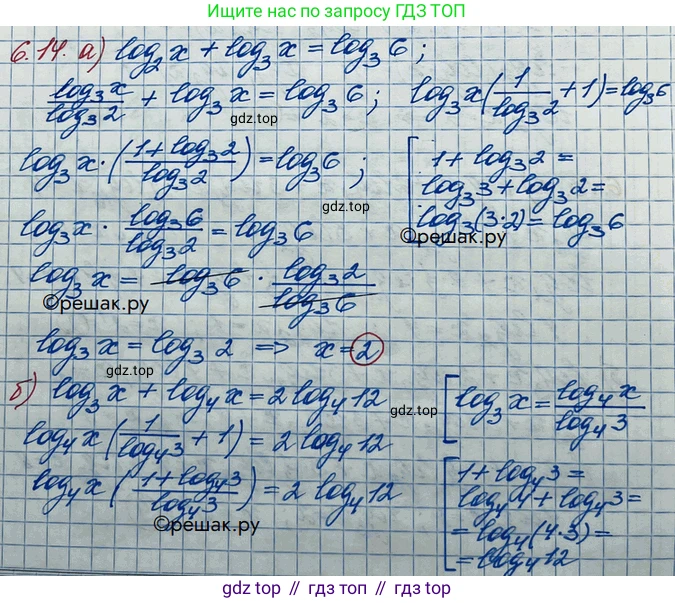 Ищите по запросу ГДЗ ТОП
6.14. а) log₂ x + log₃ x = log₃ 6 ;
log₃ x / log₃ 2 + log₃ x = log₃ 6 ; log₃ x (1 / log₃ 2 + 1) = log₃ 6
gdz.top
log₃ x · ((1 + log₃ 2) / log₃ 2) = log₃ 6 ; [ 1 + log₃ 2 =
log₃ 3 + log₃ 2 =
gdz.top
log₃ (3·2) = log₃ 6
log₃ x · log₃ 6 / log₃ 2 = log₃ 6
©решак.ру
log₃ x = log₃ 6 · log₃ 2 / log₃ 6
©решак.ру
log₃ x = log₃ 2 => x = 2
gdz.top
б) log₃ x + log₄ x = 2 log₄ 12 [ log₃ x = log₄ x / log₄ 3
gdz.top
log₄ x (1 / log₄ 3 + 1) = 2 log₄ 12
log₄ x ((1 + log₄ 3) / log₄ 3) = 2 log₄ 12 [ 1 + log₄ 3 =
log₄ 4 + log₄ 3 =
= log₄ (4·3) =
= log₄ 12
©решак.ру
gdz.top // гдз.топ // gdz.top // гдз.топ